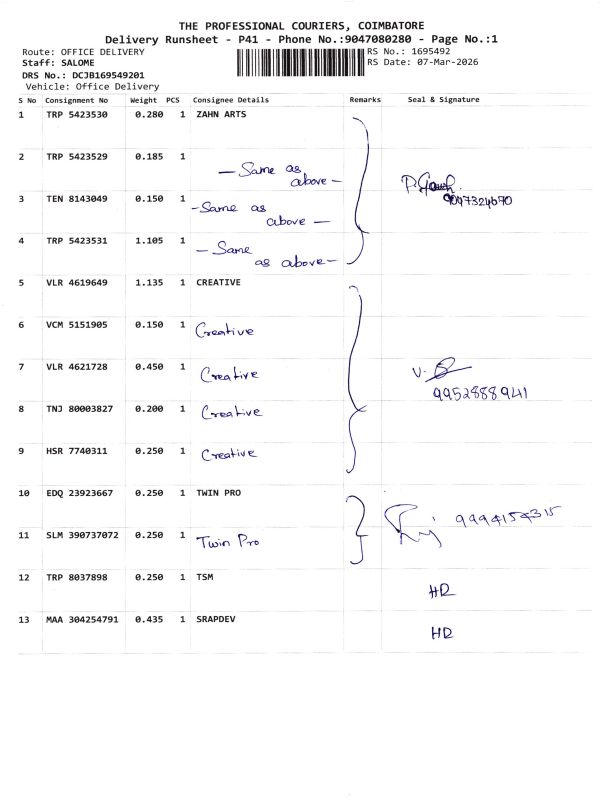 THE PROFESSIONAL COURIERS, COIMBATORE
Delivery Runsheet - P41 - Phone No.:9047080280 - Page No.:1
Route: OFFICE DELIVERY RS No.: 1695492
Staff: SALOME RS Date: 07-Mar-2026
DRS No.: DCJB169549201
Vehicle: Office Delivery
S No Consignment No Weight PCS Consignee Details Remarks Seal & Signature
1 TRP 5423530 0.280 1 ZAHN ARTS
2 TRP 5423529 0.185 1
— Same as
above —
3 TEN 8143049 0.150 1
- Same as
above —
4 TRP 5423531 1.105 1
— Same
as above —
5 VLR 4619649 1.135 1 CREATIVE
6 VCM 5151905 0.150 1 Creative
7 VLR 4621728 0.450 1 Creative
9952888941
8 TNJ 80003827 0.200 1 Creative
9 HSR 7740311 0.250 1 Creative
10 EDQ 23923667 0.250 1 TWIN PRO
11 SLM 390737072 0.250 1 Twin Pro
12 TRP 8037898 0.250 1 TSM
13 MAA 304254791 0.435 1 SRAPDEV